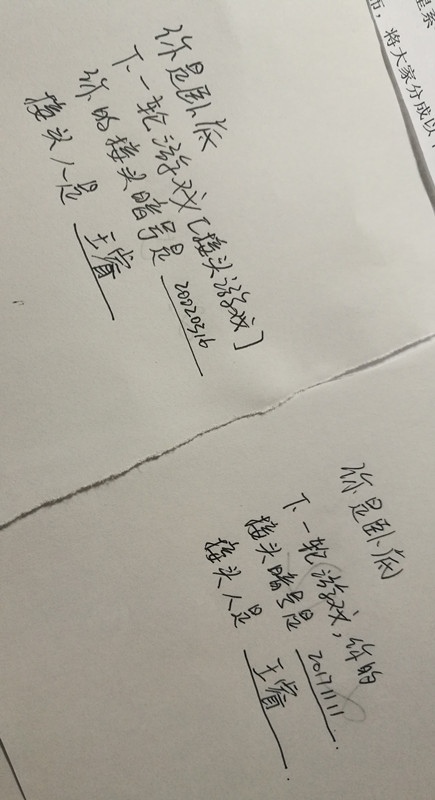 你是卧底
下一轮游戏[接头游戏]
你的接头暗号是 20020316
接头人是 王睿
你是卧底
下一轮游戏,你的
接头暗号是 20171111.
接头人是 王睿.
将大家分成以